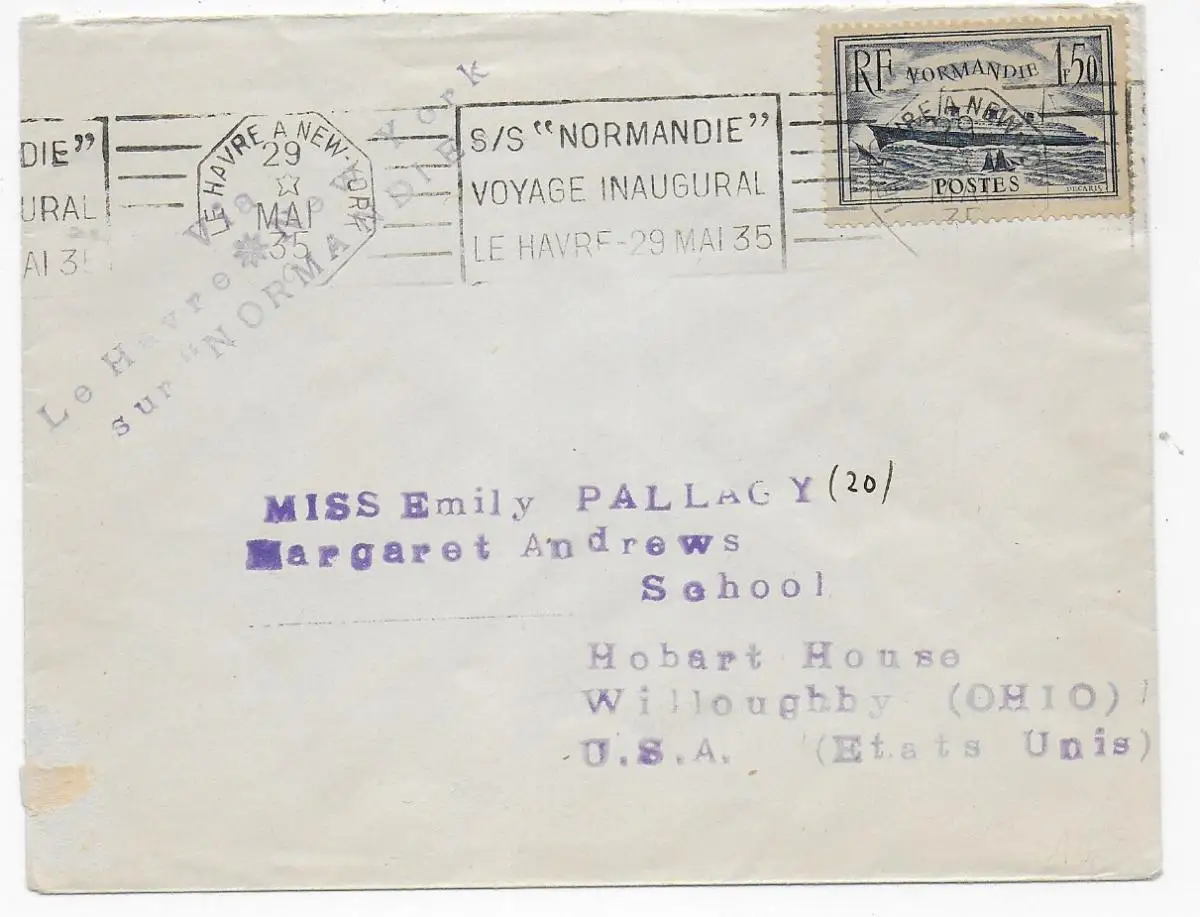 RF NORMANDIE 1F50
POSTES
DECARIS
DIE"
URAL
AI 35
LE HAVRE A NEW-YORK
29
MAI
35
S/S "NORMANDIE"
VOYAGE INAUGURAL
LE HAVRE-29 MAI 35
LE HAVRE A NEW-
35
Via
Le Havre * New York
sur "NORMANDIE"
MISS Emily PALLAGY (20)
Margaret Andrews
School
Hobart House
Willoughby (OHIO)
U.S.A. (Etats Unis)